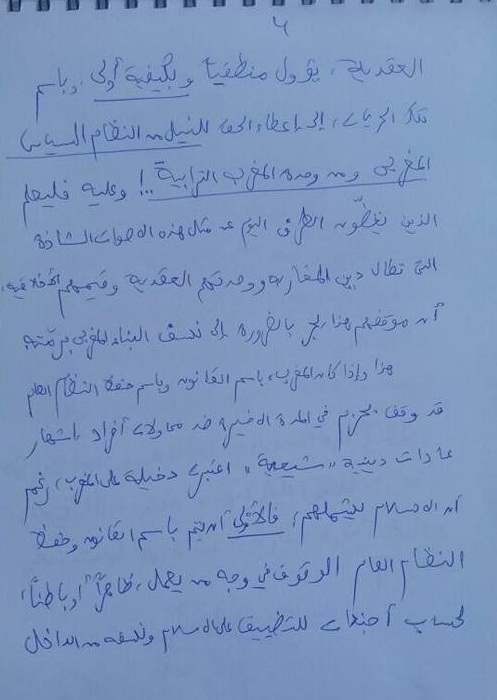 4
العقدية، يؤول منطقيا وبكيفية أولى، وباسم
تلك الحريات، إلى إعطاء الحق للنيل من النظام السياسي
المغربي ومن وحدة المغرب الترابية..! وعليه فليعلم
الذين يغضّون الطرف اليوم عن مثل هذه الأصوات الشاذة
التي تطال دين المغاربة ووحدتهم العقدية وقيمهم الأخلاقية،
أن موقفهم هذا يجر بالضرورة إلى نسف البناء المغربي برمّته
هذا وإذا كان المغرب، باسم القانون وباسم حفظ النظام العام
قد وقف بحزم في المدة الأخيرة ضد محاولات أفراد إشهار
عادات دينية "شيعية" اعتبرت دخيلة على المغرب، رغم
أن الإسلام يشملهم، فالأولى أن يتم باسم القانون وحفظ
النظام العام الوقوف في وجه من يعمل، ظاهراً أو باطناً،
لحساب أجندات للتضييق على الإسلام ونسفه من الداخل